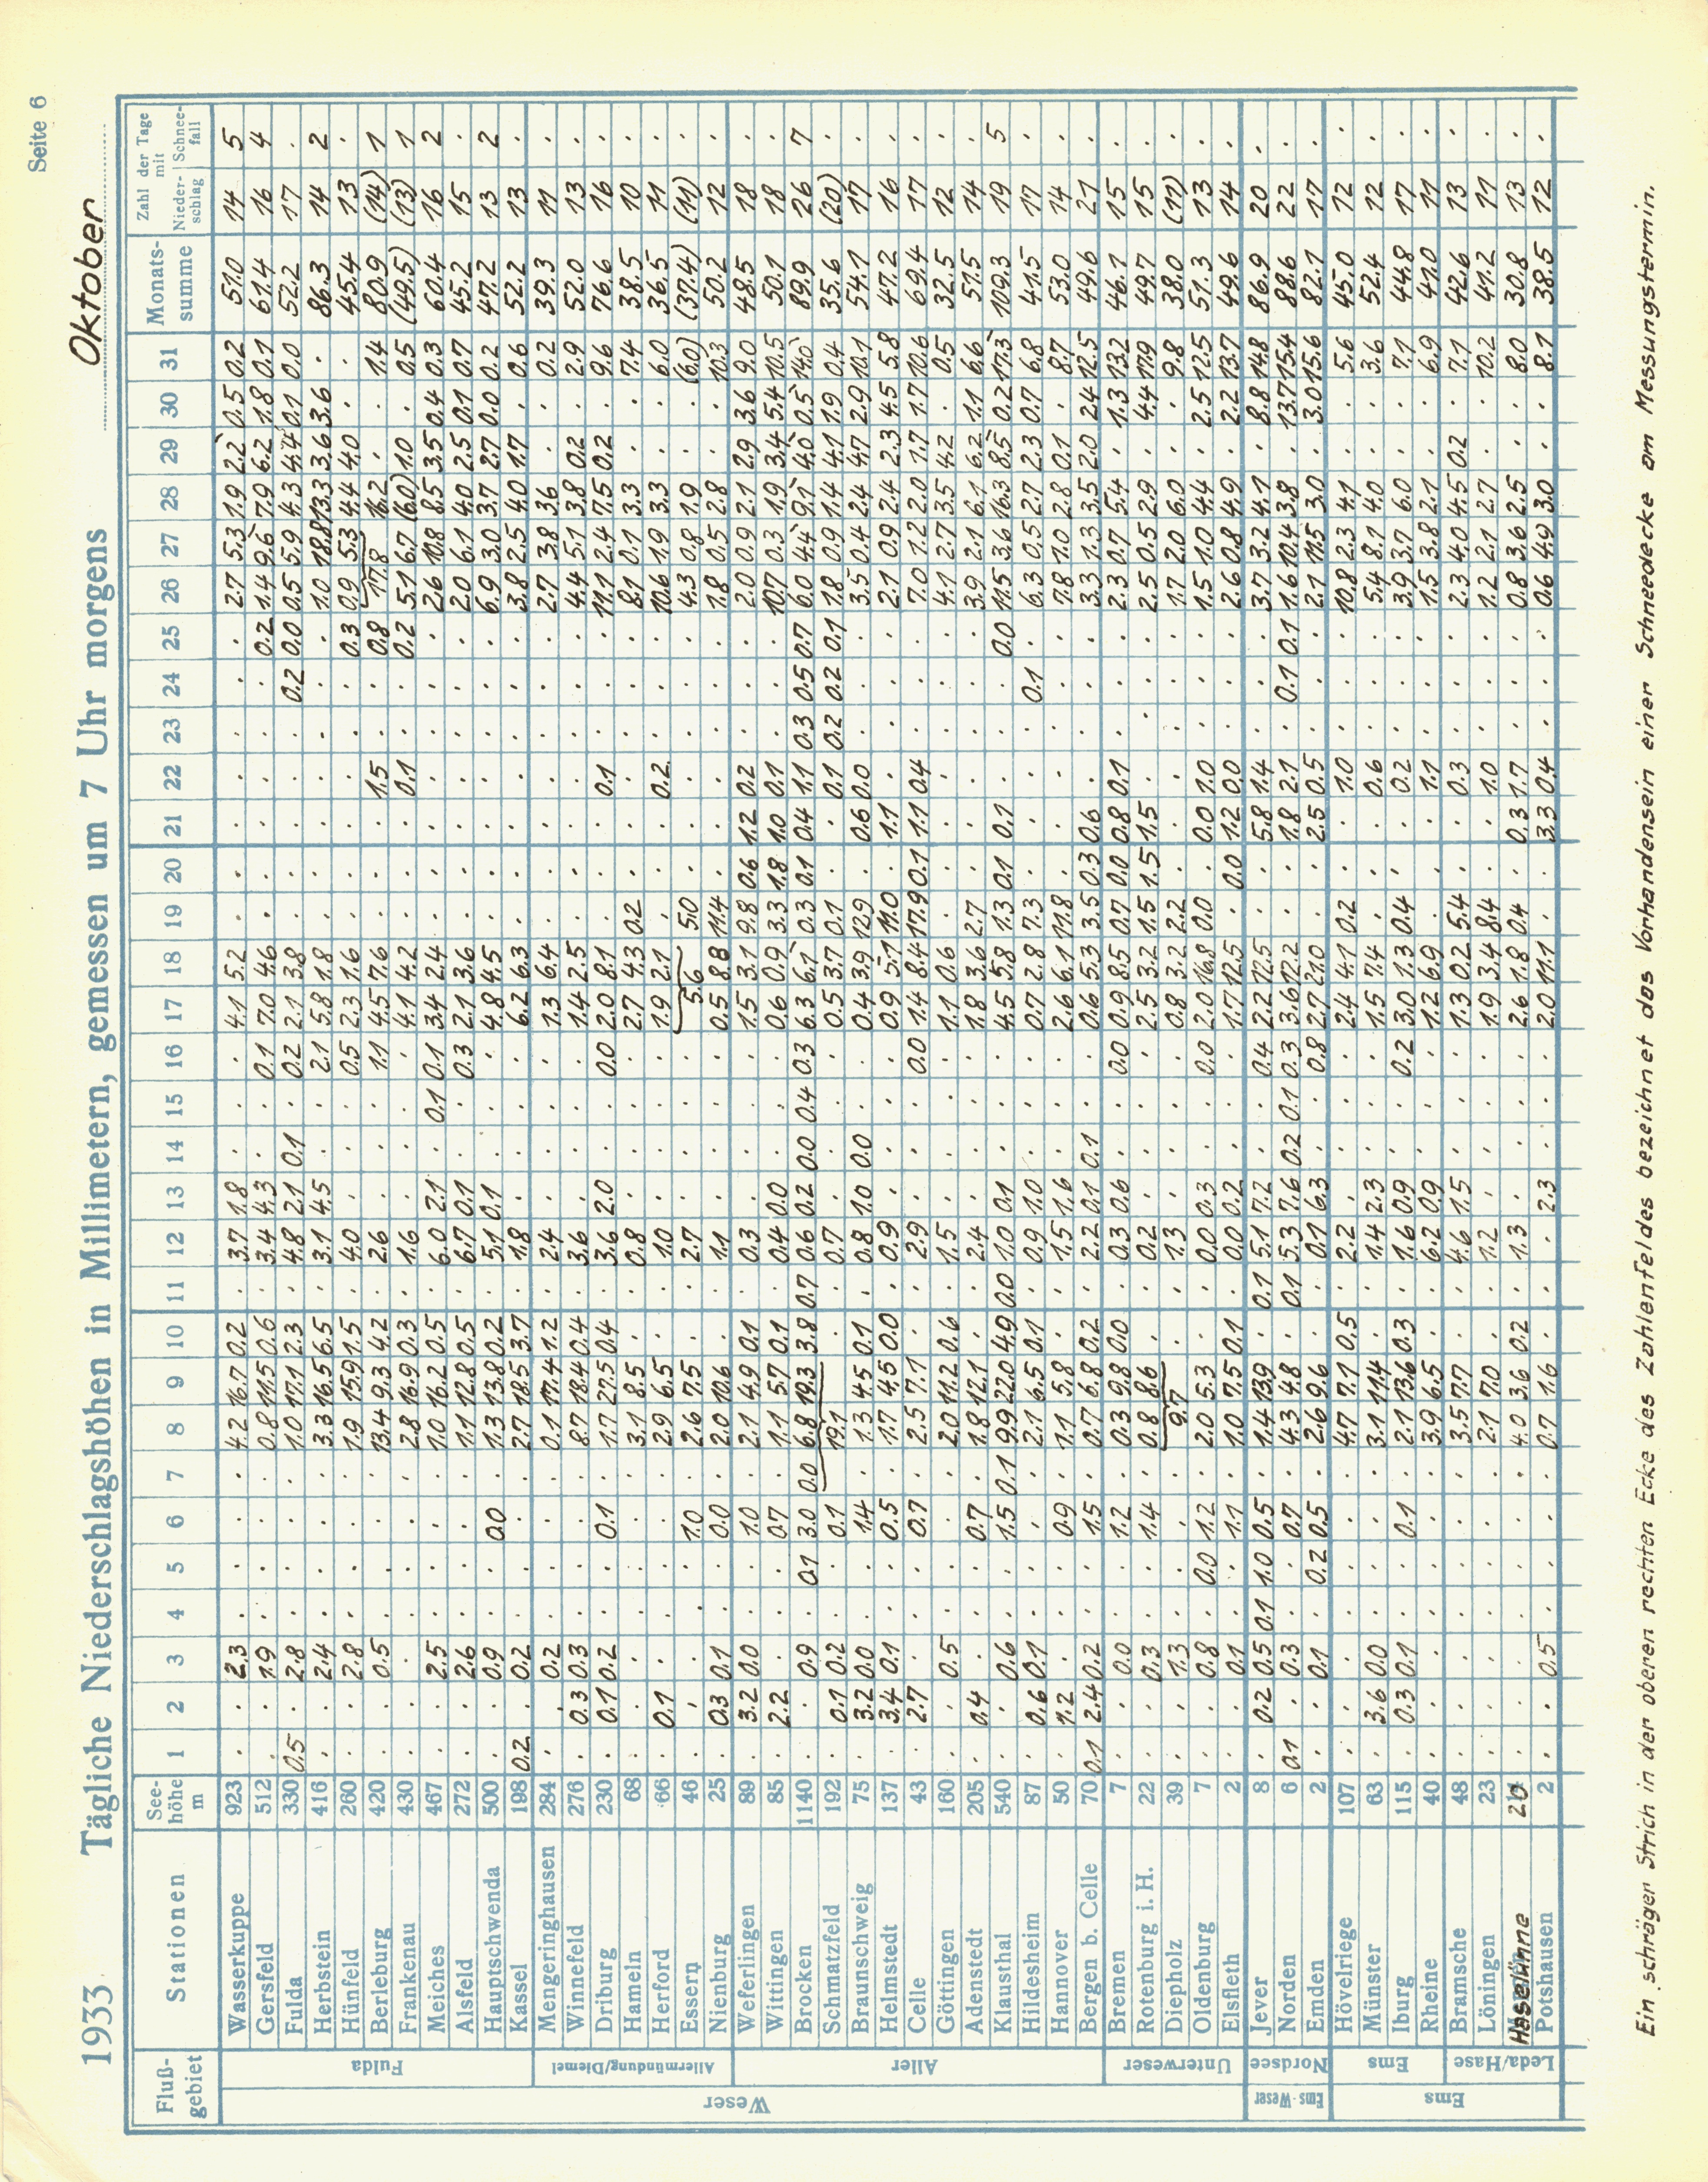 Seite 6
1933 Tägliche Niederschlagshöhen in Millimetern, gemessen um 7 Uhr morgens Oktober
Fluß-gebiet Stationen See-höhe m 1 2 3 4 5 6 7 8 9 10 11 12 13 14 15 16 17 18 19 20 21 22 23 24 25 26 27 28 29 30 31 Monats-summe Zahl der Tage mit Nieder-schlag Schnee-fall
Weser
Fulda
Wasserkuppe 923 . . 2.3 . . . . 4.2 16.7 0.2 . 3.7 1.8 . . . 4.1 5.2 . . . . . . . 2.7 5.3 1.9 2.2 0.5 0.2 51.0 14 5
Gersfeld 512 . . 1.9 . . . . 0.8 11.5 0.6 . 3.4 4.3 . . 0.1 7.0 4.6 . . . . . . 0.2 1.4 9.6 7.9 6.2 1.8 0.1 61.4 16 4
Fulda 330 0.5 . 2.8 . . . . 1.0 17.1 2.3 . 4.8 2.1 0.1 . 0.2 2.1 3.8 . . . . . 0.2 0.0 0.5 5.9 4.3 4.4 0.1 0.0 52.2 17 .
Herbstein 416 . . 2.4 . . . . 3.3 16.5 6.5 . 3.1 4.5 . . 2.1 5.8 1.8 . . . . . . . 1.0 18.8 13.3 3.6 3.6 . 86.3 14 2
Hünfeld 260 . . 2.8 . . . . 1.9 15.9 1.5 . 4.0 . . . 0.5 2.3 1.6 . . . . . . 0.3 0.9 5.3 4.4 4.0 . . 45.4 13 .
Berleburg 420 . . 0.5 . . . . 13.4 9.3 4.2 . 2.6 . . . 1.1 4.5 7.6 . . . 1.5 . . 0.8 17.8 16.2 . . 1.4 80.9 (14) 1
Frankenau 430 . . . . . . . 2.8 16.9 0.3 . 1.6 . . . . 4.1 4.2 . . . 0.1 . . 0.2 5.1 6.7 (6.0) 1.0 . 0.5 (49.5) (13) 1
Meiches 467 . . 2.5 . . . . 1.0 16.2 0.5 . 6.0 2.1 . 0.1 0.1 3.4 2.4 . . . . . . . 2.6 10.8 8.5 3.5 0.4 0.3 60.4 16 2
Alsfeld 272 . . 2.6 . . . . 1.1 12.8 0.5 . 6.7 0.1 . . 0.3 2.1 3.6 . . . . . . . 2.0 6.1 4.0 2.5 0.1 0.7 45.2 15 .
Hauptschwenda 500 . . 0.9 . . 0.0 . 1.3 13.8 0.2 . 5.1 0.1 . . . 4.8 4.5 . . . . . . . 6.9 3.0 3.7 2.7 0.0 0.2 47.2 13 2
Kassel 198 0.2 . 0.2 . . . . 2.7 18.5 3.7 . 1.8 . . . . 6.2 6.3 . . . . . . . 3.8 2.5 4.0 1.7 . 0.6 52.2 13 .
Allermündung/Diemel
Mengeringhausen 284 . . 0.2 . . . . 0.1 17.4 1.2 . 2.4 . . . . 1.3 6.4 . . . . . . . 2.7 3.8 3.6 . . 0.2 39.3 11 .
Winnefeld 276 . 0.3 0.3 . . . . 8.7 18.4 0.4 . 3.6 . . . . 1.4 2.5 . . . . . . . 4.4 5.1 3.8 0.2 . 2.9 52.0 13 .
Driburg 230 . 0.1 0.2 . . 0.1 . 1.7 27.5 0.4 . 3.6 2.0 . . 0.0 2.0 8.1 . . . 0.1 . . . 11.1 2.4 7.5 0.2 . 9.6 76.6 16 .
Hameln 68 . . . . . . . 3.1 8.5 . . 0.8 . . . . 2.7 4.3 0.2 . . . . . . 8.1 0.1 3.3 . . 7.4 38.5 10 .
Herford 66 . 0.1 . . . . . 2.9 6.5 . . 1.0 . . . . 1.9 2.1 . . . 0.2 . . . 10.6 1.9 3.3 . . 6.0 36.5 11 .
Essern 46 . . . . . 1.0 . 2.6 7.5 . . 2.7 . . . . 5.6 5.0 . . . . . . 4.3 0.8 1.9 . . (6.0) (37.4) (11) .
Nienburg 25 . 0.3 0.1 . . 0.0 . 2.0 10.6 . . 1.1 . . . . 0.5 8.8 11.4 . . . . . . 1.8 0.5 2.8 . . 10.3 50.2 12 .
Aller
Weferlingen 89 . 3.2 0.0 . . 1.0 . 2.1 4.9 0.1 . 0.3 . . . . 1.5 3.1 9.8 0.6 1.2 0.2 . . . 2.0 0.9 2.1 2.9 3.6 9.0 48.5 18 .
Wittingen 85 . 2.2 . . . 0.7 . 1.1 5.7 0.1 . 0.4 0.0 . . . 0.6 0.9 3.3 1.8 1.0 0.1 . . . 10.7 0.3 1.9 3.4 5.4 10.5 50.1 18 .
Brocken 1140 . . 0.9 . 0.1 3.0 0.0 6.8 19.3 3.8 0.7 0.6 0.2 0.0 0.4 0.3 6.3 6.1 0.3 0.1 0.4 1.1 0.3 0.5 0.7 6.0 4.4 9.1 4.0 0.5 14.0 89.9 26 7
Schmatzfeld 192 . 0.1 0.2 . . 0.1 19.1 . . 0.7 . . . . 0.5 3.7 0.1 . . 0.1 0.2 0.2 0.1 1.8 0.9 1.4 4.1 1.9 0.4 35.6 (20) .
Braunschweig 75 . 3.2 0.0 . . 1.4 . 1.3 4.5 0.1 . 0.8 1.0 0.0 . . 0.4 3.9 12.9 . 0.6 0.0 . . . 3.5 0.4 2.4 4.7 2.9 10.1 54.1 17 .
Helmstedt 137 . 3.4 0.1 . . 0.5 . 1.7 4.5 0.0 . 0.9 . . . . 0.9 5.1 11.0 . 1.1 . . . . 2.1 0.9 2.4 2.3 4.5 5.8 47.2 16 .
Celle 43 . 2.7 . . . 0.7 . 2.5 7.1 . . 2.9 . . . 0.0 1.4 8.4 17.9 0.1 1.1 0.4 . . . 7.0 1.2 2.0 1.7 1.7 10.6 69.4 17 .
Göttingen 160 . . 0.5 . . . . 2.0 11.2 0.6 . 1.5 . . . . 1.1 0.6 . . . . . . . 4.1 2.7 3.5 4.2 . 0.5 32.5 12 .
Adenstedt 205 . 0.4 . . . 0.7 . 1.8 12.1 . . 2.4 . . . . 1.8 3.6 2.7 . . . . . . 3.9 2.1 6.1 6.2 1.1 6.6 51.5 14 .
Klausthal 540 . . 0.6 . . 1.5 0.1 9.9 22.0 4.9 0.0 1.0 0.1 . . . 4.5 5.8 1.3 0.1 0.1 . . . 0.0 11.5 3.6 16.3 8.5 0.2 17.3 109.3 19 5
Hildesheim 87 . 0.6 0.1 . . . . 2.1 6.5 0.1 . 0.9 1.0 . . . 0.7 2.8 7.3 . . . . 0.1 . 6.3 0.5 2.7 2.3 0.7 6.8 41.5 17 .
Hannover 50 . 1.2 . . . 0.9 . 1.1 5.8 . . 1.5 1.6 . . . 2.6 6.1 11.8 . . . . . . 7.8 1.0 2.8 0.1 . 8.7 53.0 14 .
Bergen b. Celle 70 0.1 2.4 0.2 . . 1.5 . 0.7 6.8 0.2 . 2.2 0.1 0.1 . . 0.6 5.3 3.5 0.3 0.6 . . . . 3.3 1.3 3.5 2.0 2.4 12.5 49.6 21 .
Unterweser
Bremen 7 . . 0.0 . . 1.2 . 0.3 9.8 0.0 . 0.3 0.6 . . 0.0 0.9 8.5 0.7 0.0 0.8 0.1 . . . 2.3 0.7 5.4 . 1.3 13.2 46.1 15 .
Rotenburg i. H. 22 . . 0.3 . . 1.4 . 0.8 8.6 . . 0.2 . . . . 2.5 3.2 1.5 1.5 1.5 . . . . 2.5 0.5 2.9 . 4.4 17.9 49.7 15 .
Diepholz 39 . . 1.3 . . . . 9.7 . . 1.3 . . . . 0.8 3.2 2.2 . . . . . . 1.7 2.0 6.0 . . 9.8 38.0 (11) .
Oldenburg 7 . . 0.8 . 0.0 1.2 . 2.0 5.3 . . 0.0 0.3 . . 0.0 2.0 16.8 0.0 . 0.0 1.0 . . . 1.5 1.0 4.4 . 2.5 12.5 51.3 13 .
Elsfleth 2 . . 0.1 . . 1.1 . 1.0 7.5 0.1 . 0.0 0.2 . . . 1.7 12.5 . 0.0 1.2 0.0 . . . 2.6 0.8 4.9 . 2.2 13.7 49.6 14 .
Ems-Weser
Nordsee
Jever 8 . 0.2 0.5 0.1 1.0 0.5 . 1.4 13.9 . 0.1 5.1 7.2 . . 0.4 2.2 12.5 . . 5.8 1.4 . . . 3.7 3.2 4.1 . 8.8 14.8 86.9 20 .
Norden 6 0.1 . 0.3 . . 0.7 . 4.3 4.8 . 0.1 5.3 7.6 0.2 0.1 0.3 3.6 12.2 . . 1.8 2.1 . 0.1 0.1 1.6 10.4 3.8 . 13.7 15.4 88.6 22 .
Emden 2 . . 0.1 . 0.2 0.5 . 2.6 9.6 . . 0.1 6.3 . . 0.8 2.7 21.0 . . 2.5 0.5 . . . 2.1 11.5 3.0 . 3.0 15.6 82.1 17 .
Ems
Ems
Hövelriege 107 . . . . . . . 4.7 7.1 0.5 . 2.2 . . . . 2.4 4.1 0.2 . . 1.0 . . . 10.8 2.3 4.1 . . 5.6 45.0 12 .
Münster 63 . 3.6 0.0 . . . . 3.1 11.4 . . 1.4 2.3 . . . 1.5 7.4 . . . 0.6 . . . 5.4 8.1 4.0 . . 3.6 52.4 12 .
Iburg 115 . 0.3 0.1 . . 0.1 . 2.1 13.6 0.3 . 1.6 0.9 . . 0.2 3.0 1.3 0.4 . . 0.2 . . . 3.9 3.7 6.0 . . 7.1 44.8 17 .
Rheine 40 . . . . . . . 3.9 6.5 . . 6.2 0.9 . . . 1.2 6.9 . . . 1.1 . . . 1.5 3.8 2.1 . . 6.9 41.0 11 .
Leda/Hase
Bramsche 48 . . . . . . . 3.5 7.7 . . 4.6 1.5 . . . 1.3 0.2 5.4 . . 0.3 . . . 2.3 4.0 4.5 0.2 . 7.1 42.6 13 .
Löningen 23 . . . . . . . 2.1 7.0 . . 1.2 . . . . 1.9 3.4 8.4 . . 1.0 . . . 1.2 2.1 2.7 . . 10.2 41.2 11 .
Haselünne 20 . . . . . . . 4.0 3.6 0.2 . 1.3 . . . . 2.6 1.8 0.4 . 0.3 1.7 . . . 0.8 3.6 2.5 . . 8.0 30.8 13 .
Potshausen 2 . . 0.5 . . . . 0.7 1.6 . . . 2.3 . . . 2.0 11.1 . . 3.3 0.4 . . . 0.6 4.9 3.0 . . 8.1 38.5 12 .
Ein schräger Strich in der oberen rechten Ecke des Zahlenfeldes bezeichnet das Vorhandensein einer Schneedecke am Messungstermin.